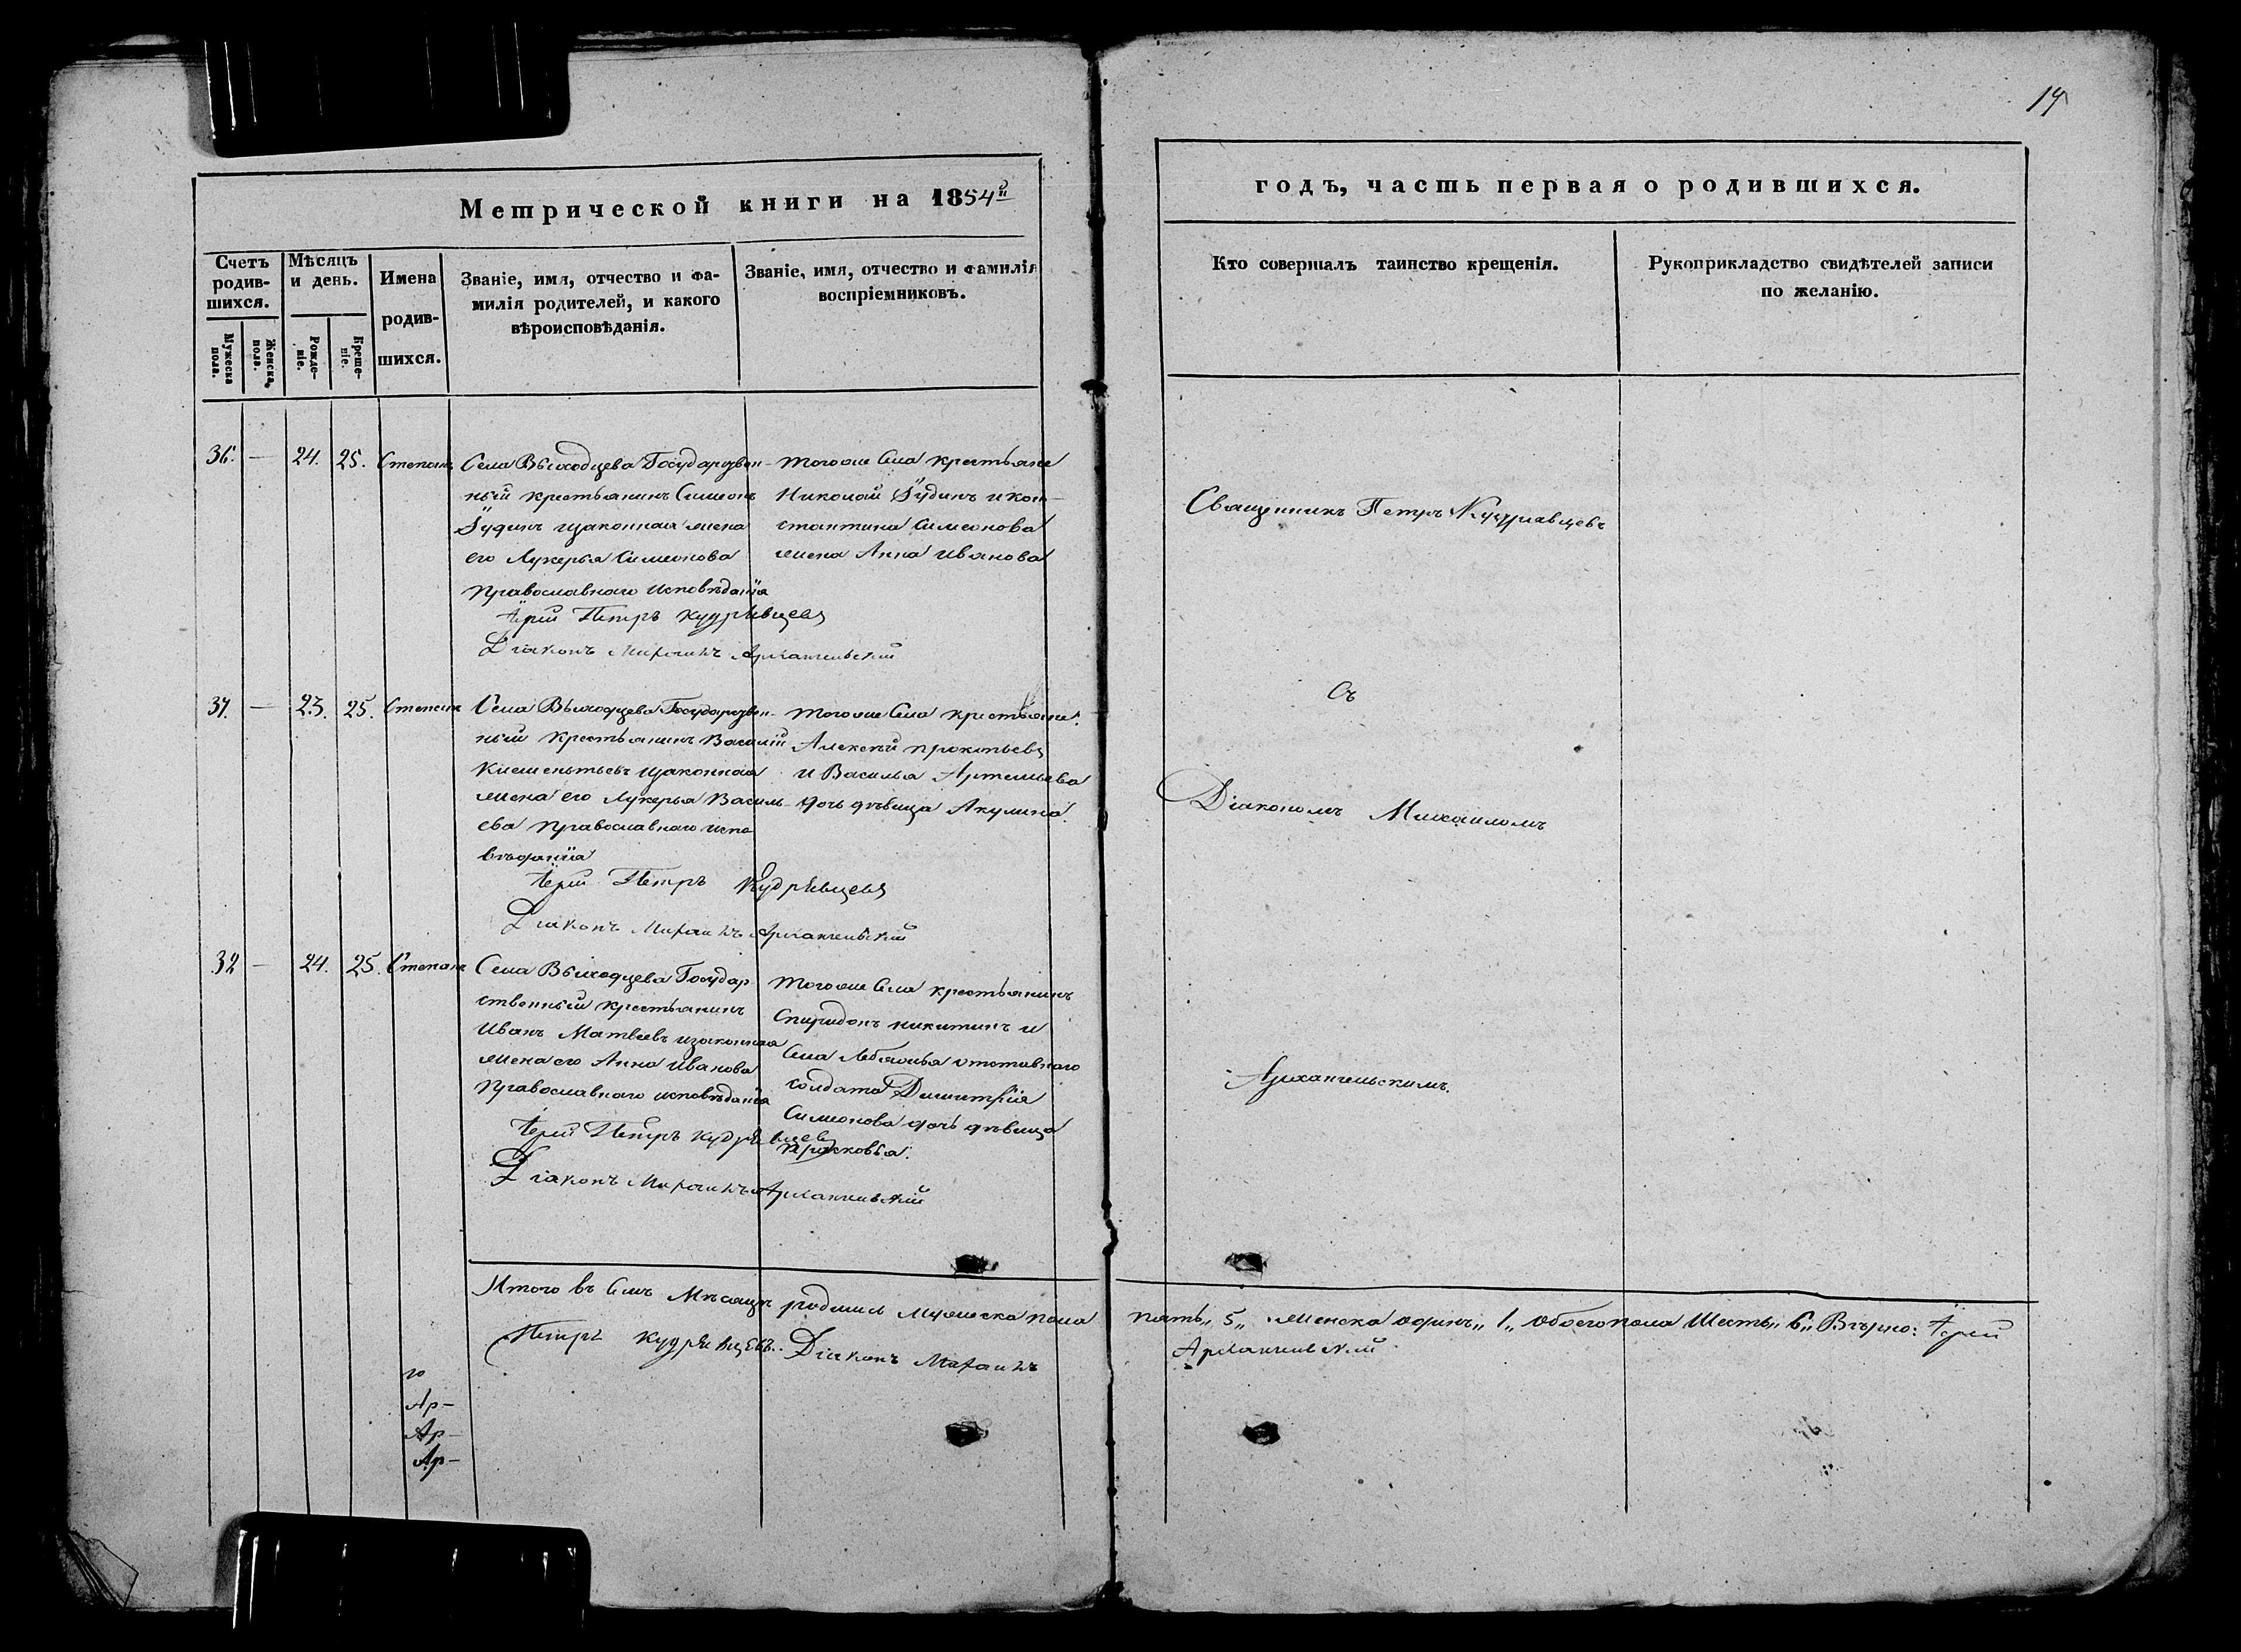 19
Метрической книги на 1854й
годъ, часть первая о родившихся.
Счетъ родив-шихся.
Мужеска пола.
Женска пола.
Мѣсяцъ и день.
Рожде-ніе.
Креще-ніе.
Имена родив-шихся.
Званіе, имя, отчество и фа-
милія родителей, и какого
вѣроисповѣданія.
Званіе, имя, отчество и фамилія
воспріемниковъ.
Кто совершалъ таинство крещенія.
Рукоприкладство свидѣтелей записи
по желанію.
36. — 24. 25. Степанъ
Села Выходцева Государствен-
ный крестьянинъ Симеонъ
Іудинъ изаконная жена
его Лукерья Симеонова
православнаго исповѣданія
Іерей Петръ Кудрявцевъ
Діаконъ Михаилъ Архангельскій
тогоже Села крестьяне
Николай Іудинъ и кон-
стантина Симеонова
жена Анна Иванова
37. — 23. 25. Степанъ
Села Выходцева Государствен-
ный крестьянинъ Василій
Клементьевъ изаконная
жена его Лукерья Василь-
ева православнаго испо
вѣданія
Іерей Петръ Кудрявцевъ
Діаконъ Михаилъ Архангельскій
тогоже Села крестьяне:
Алексѣй прокопьевъ
и Василья Артемьева
дочь дѣвица Акулина.
32 — 24. 25. Степанъ
Села Выходцева Государ
ственный крестьянинъ
Иванъ Матвеевъ изаконная
жена его Анна Иванова
православнаго исповѣданія
Іерей Петръ Кудрявцевъ
Діаконъ Михаилъ Архангельскій
тогоже Села крестьянинъ
Спиридонъ никитинъ и
Села Лебяжья отставнаго
солдата Димитрія
Симеонова дочь дѣвица
прасковья.
Священникъ Петръ Кудрявцевъ
Съ
Діакономъ Михаиломъ
Архангельскимъ.
Итого въ Семъ Мѣсяцѣ родилось Мужеска пола пять„ 5„ женска одинъ„ 1„ обоего пола Шесть„ 6„ Вѣрно: Іерей
Петръ Кудрявцевъ. Діаконъ Михаилъ Архангельскій
го
Ар-
Ар-
Ар-